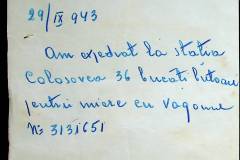 29/IX 943
Am expediat la stația
Colosovca 36 bucăți butoaie
pentru miere cu vagonul
No 3131651